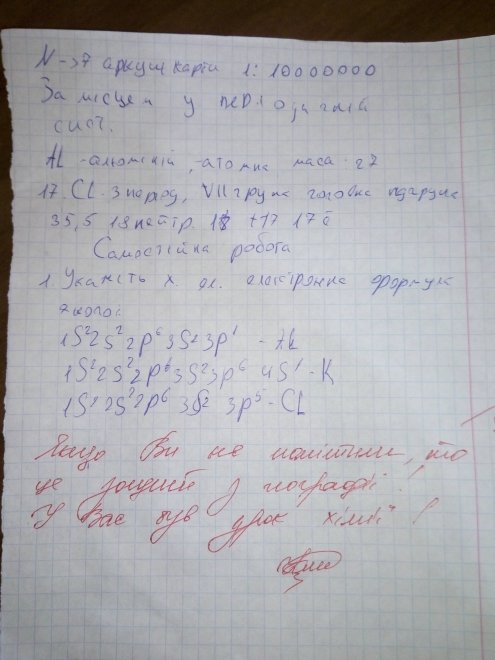 N-37 аркуш карти 1:10000000
За місцем у періодичній
сист.
AL -алюміній, -атомна маса 27
17. CL. 3 період, VII група головна підгрупа
35,5 18 нейтр. 18 +17 17ē
Самостійна робота
1. Укажіть х. ел. електронна формула
якого:
1S² 2S² 2p⁶ 3S2 3p¹ - AL
1S² 2S² 2p⁶ 3S² 3p⁶ 4S¹ - K
1S² 2S² 2p⁶ 3S2 3p⁵ - CL
Якщо Ви не помітили, то
це зошит з географії!
У Вас був урок хімії!